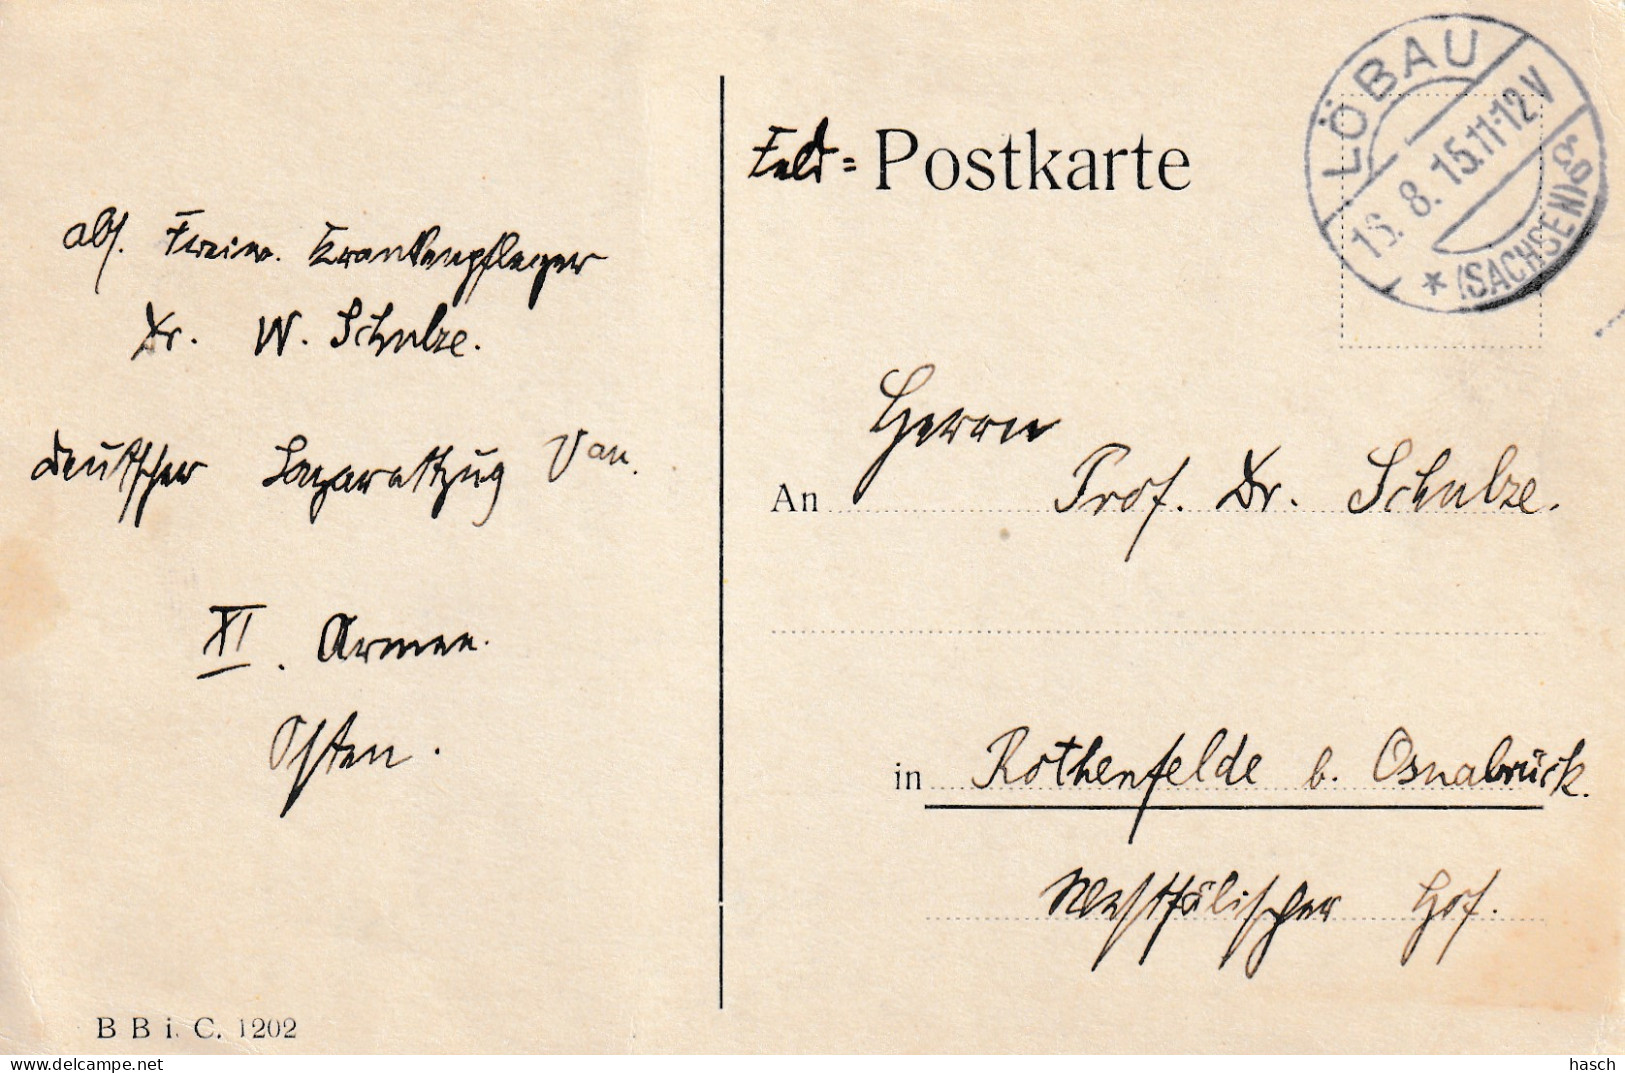 abs. Freiw. Krankenpfleger
Dr. W. Schulze.
deutscher Lazarettzug Van.
XI. Armee.
Osten.
B B i. C. 1202
Feld= Postkarte
LÖBAU
16. 8. 15. 11-12 V
* (SACHSEN) g
Herrn
An Prof. Dr. Schulze.
in Rothenfelde b. Osnabrück.
Westfälischer Hof.
hasch
delcampe.net